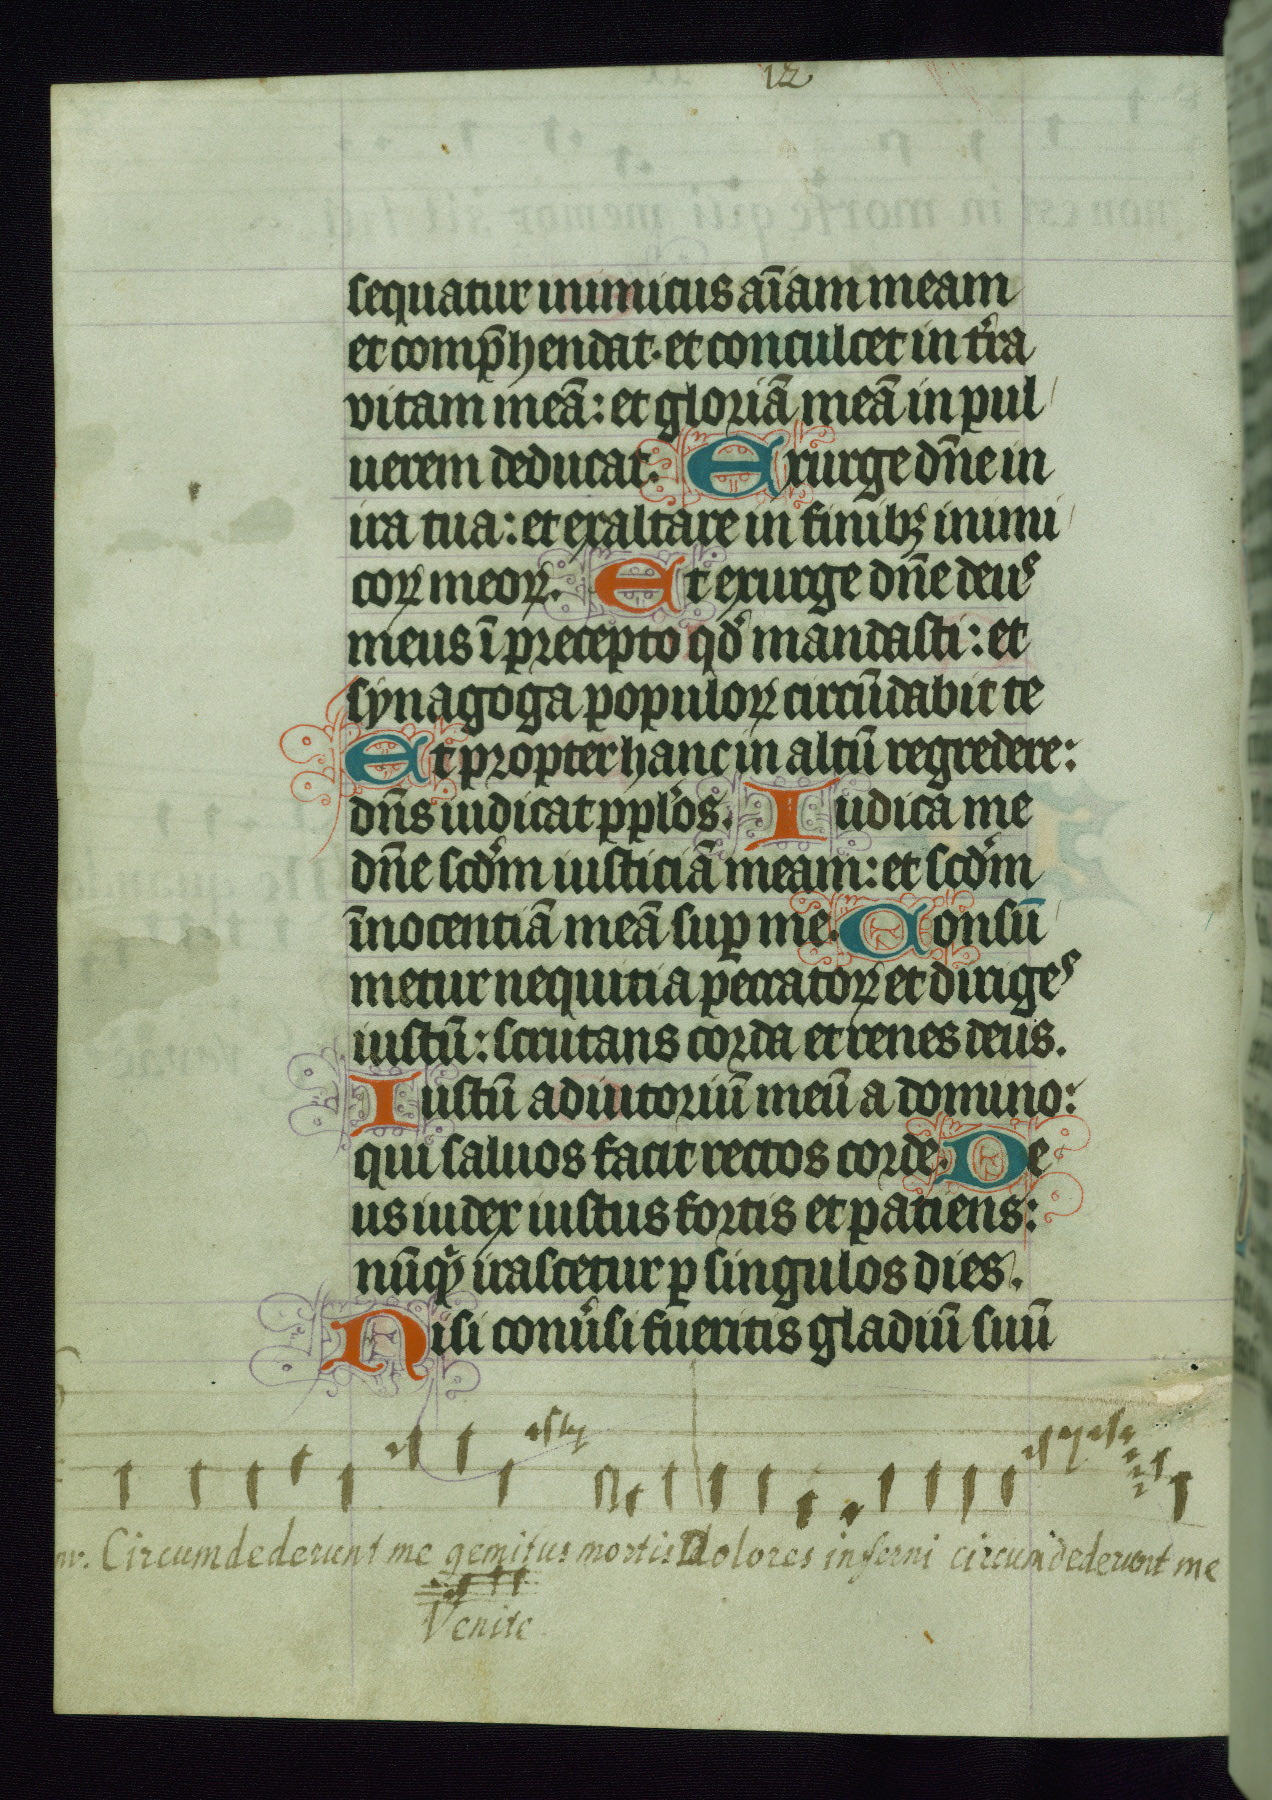 12
sequatur inimicus aīam meam
et comp̄hendat. et conculcet in tr̄a
vitam meā: et gloriā meā in pul
uerem deducat. Exurge dn̄e in
ira tua: et exaltare in finibꝫ inimi
coꝝ meoꝝ. Et exurge dn̄e deus
meus ī precepto qd̄ mandasti: et
synagoga populoꝝ circūdabit te
Et propter hanc in altū regredere:
dn̄s iudicat pplōs. Iudica me
dn̄e scd̄m iusticiā meam: et scd̄m
īnocentiā meā suꝑ me. Consū
metur nequitia peccatoꝝ et diriges
iustū: scrutans corda et renes deus.
Iustū adiutoriū meū a domino:
qui saluos facit rectos corde. De
us iudex iustus fortis et patiens:
nūqᷓ irascetur ꝑ singulos dies.
Nisi conūsi fueritis gladiū suū
Circumdederunt me gemitus mortis Dolores inferni circumdederunt me
Venite